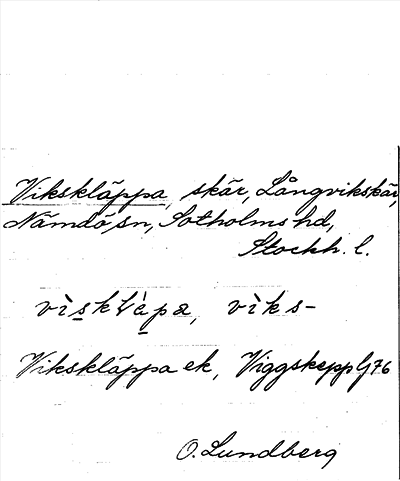 Vikskläppa, skär, Långvikskär,
Nämdö sn, Sotholms hd,
Stockh. l.
vìsklàpa, vìks-
Vikskläppa ek, Viggskepp G76
O. Lundberg